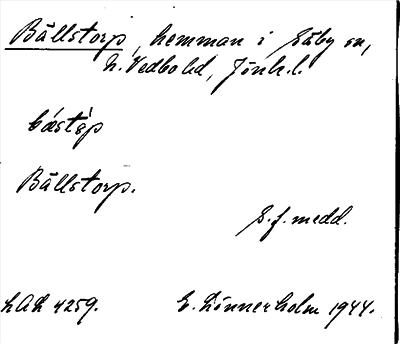 Bällstorp, hemman i Säby sn,
N. Vedbo hd, Jönk. l.
bástàp
Bällstorp.
S. f. medd.
LAL 4259. E. Linnerholm 1944.